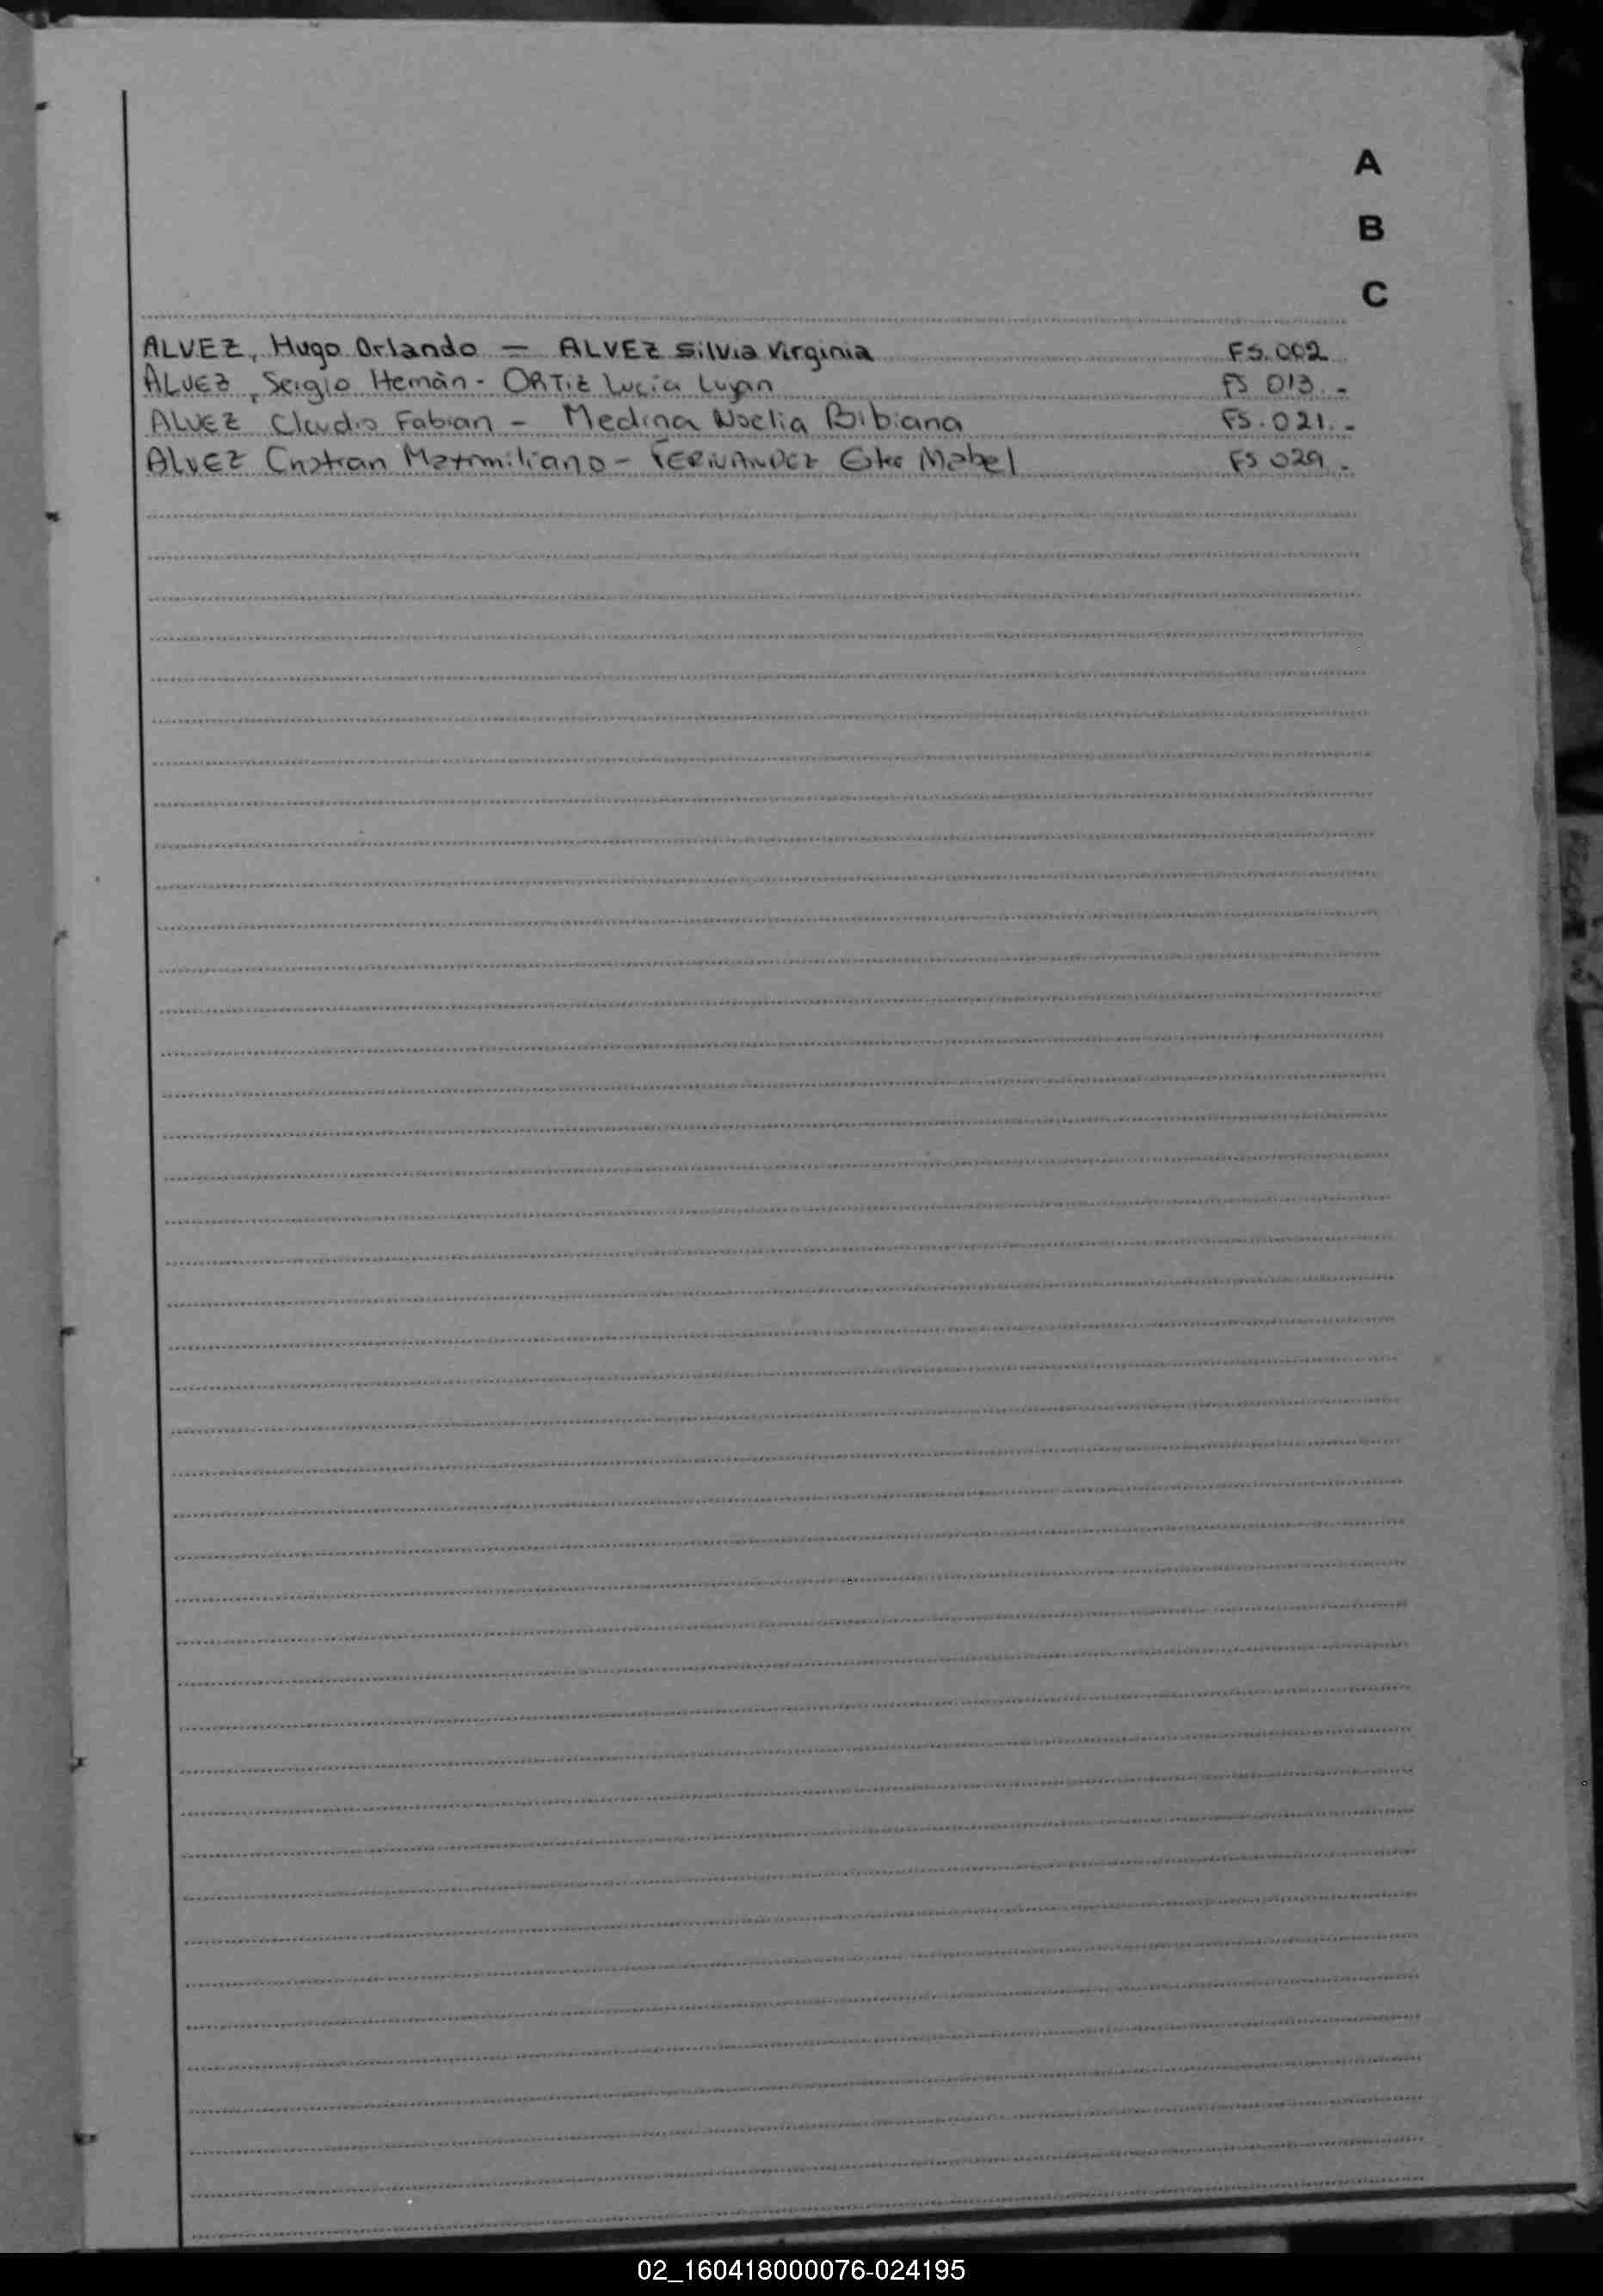 A
B
C
ALVEZ, Hugo Orlando — ALVEZ Silvia Virginia FS.002
ALVEZ, Sergio Hernán - ORTIZ Lucía Luján FS 013.-
ALVEZ Claudio Fabian - Medina Noelia Bibiana FS.021.-
ALVEZ Cristian Maximiliano - FERNANDEZ Mabel FS 029.-
02_160418000076-024195